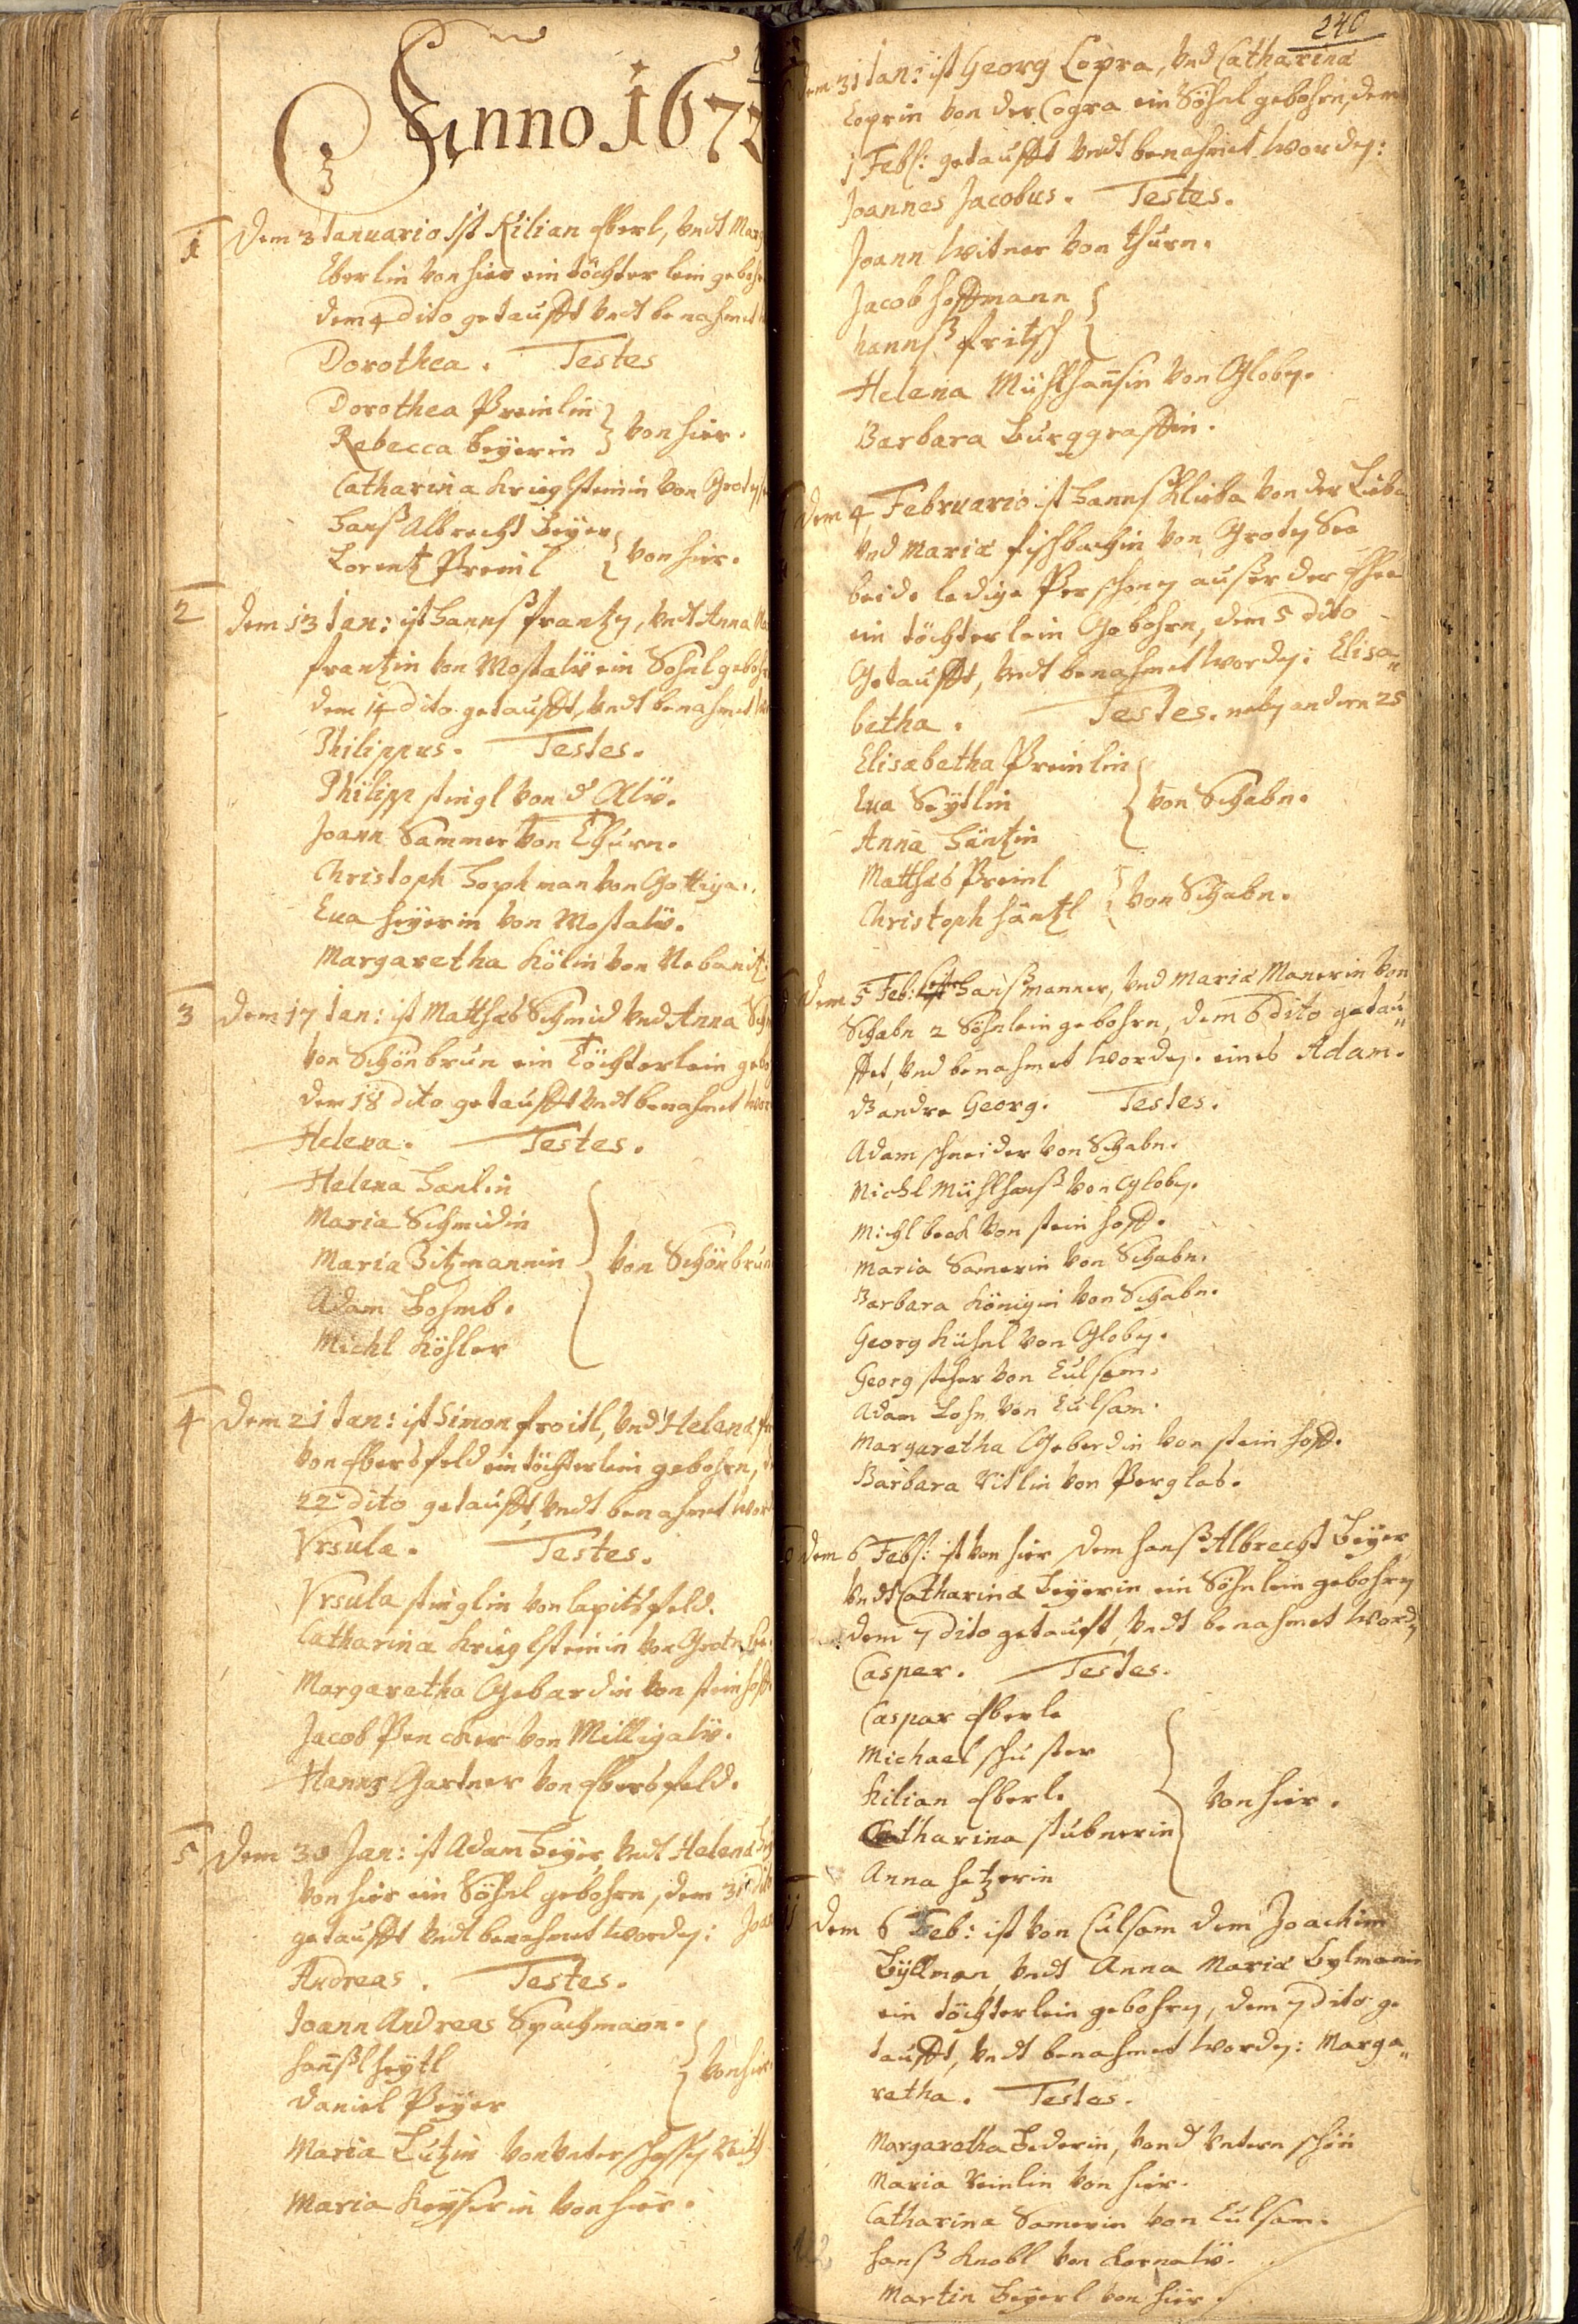 Anno 167
1 Dem 3 Januario ist Kilian Eberl, vndt Marg
Eberlin von hier ein töchterlein gebohr
dem 4 dito getaufft vndt benahmet
Dorothea. Testes
Dorothea Preinlin
Rebecca Beÿerin } von hier.
Catharina Krieglsteinin von Groten
Hanß Albrecht Beÿer
Lorentz Preinl } von hier.
2 Dem 13 Jan: ist Hannß frantz, vndt Anna
frantzin von Mostaw ein Sohnl gebohr
dem 14 dito getaufft, vndt benahmet
Philippus. Testes.
Philipp stingl von d Alw.
Joann Sammer von Thurn.
Christoph Hophman von Gottiga.
Eua heÿerin von Mostaw.
Margaretha Kölin von Nebanitz
3 Dem 17 Jan: ist Matthæs Schmid vnd Anna Sch
von Schönbrun ein Töchterlein geb
dem 18 dito getaufft vndt benahmet wor
Helena. Testes.
Helena Hanlin
Maria Schmidin
Maria Zitzmannin } von Schönbrun
Adam Böhmb.
Michl Köhler
4 Dem 21 Jan: ist Simon froitl, vnd Helena
von Ebersfeld ein töchterlein gebohrn,
22 dito getaufft, vndt benahmet word
Vrsula. Testes.
Vrsula stinglin von lapitzfeld.
Catharina Krieglsteinin von Groten See
Margaretha Gebardin von steinhoff.
Jacob Pencker von Milligaw.
Hannß Gartner von Ebersfeld.
5 Dem 30 Jan: ist Adam Beÿer, vndt Helena
von hier ein Söhnl gebohrn, dem 31 dito
getaufft vndt benahmet worden: Joan
Andreas. Testes.
Joann Andreas Spachmann.
hannßl heÿtl } von hier
Daniel Peÿer
Maria Lutzin von vnter schossen Reith
Maria Keÿserin von hier.
240
dem 31 Jan: ist Georg Lopra, vnd Catharina
Loprin von der Cogra ein Söhnl gebohrn, dem
1 Feb: getaufft vndt benahmet worden:
Joannes Jacobus. Testes.
Joann Witner von thurn.
Jacob hoffmann
hannß fritsch }
Helena Mühlhanßin von Globen.
Barbara Burggraffin.
dem 4 Februario ist Hannß Klieba von der Lieba
vnd Maria fischbachin von Groten See
beide ledige Perschonen außer der Ehe
ein töchterlein Gebohrn, dem 5 dito
Getaufft, vndt benahmet worden: Elisa
betha. Testes. neben andern 25
Elisabetha Preinlin
Eua Seÿtlin } von Schabn.
Anna Häntzin
Matthæs Preinl
Christoph häntzl } von Schabn.
dem 5 Feb: ist Hanß manner, vnd Maria Manerin von
Schabn 2 Söhnlein gebohrn, dem 6 dito getau
fft, vnd benahmet worden. eines Adam.
dß andre Georg. Testes.
Adam schneider von Schabn.
Michl Mühlhanß von Globen.
Michl beck von steinhoff.
Maria Samerin von Schabn.
Barbara Königin von Schabn.
Georg Kühnl von Globen.
Georg steher von Culsam.
Adam Lohn von Culsam.
Margaretha Geberdin von steinhoff.
Barbara Vitlin von Perglas.
dem 6 Feb: ist von hier dem hanß Albrecht Beÿer
vndt Catharina Beÿerin ein Söhnlein gebohrn
dem 7 dito getauft, vndt benahmet worden
Casper. Testes.
Caspar Eberle
Michael schuster
Kilian Eberle } von hier.
Catharina stübnerin
Anna hetzerin
11 dem 6 Feb: ist von Culsam dem Joachim
Bÿllman, vndt Anna Maria Bylmanin
ein töchterlein gebohrn, dem 7 dito ge
taufft, vndt benahmet worden: Marga
retha. Testes.
Margaretha Bederin, von d Vntern schön
Maria Reinlin von hier.
Catharina Samerin von Culsam.
hanß Knobl von Kornaw.
Martin Beÿerl von hier.